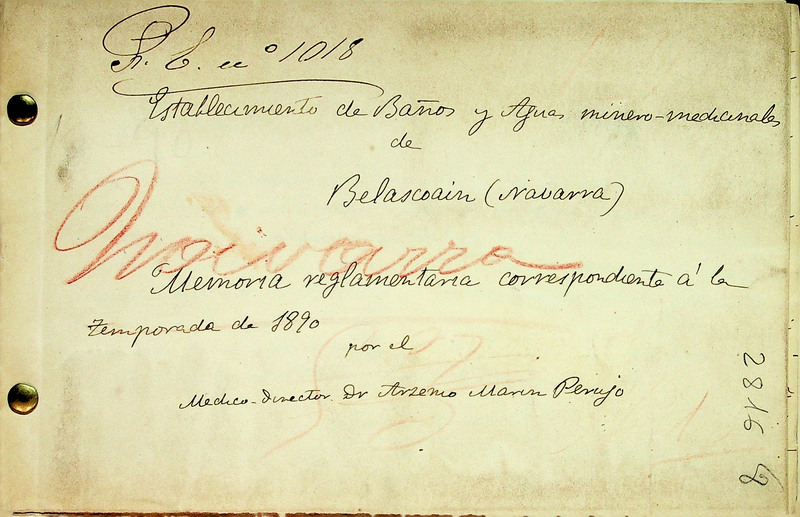 R. E. nº 1018
Establecimiento de Baños y Aguas minero-medicinales
de
Belascoain (Navarra)
Navarra
Memoria reglamentaria correspondiente á la
temporada de 1890
por el
Medico-director Dr Arsenio Marin Perujo
2816